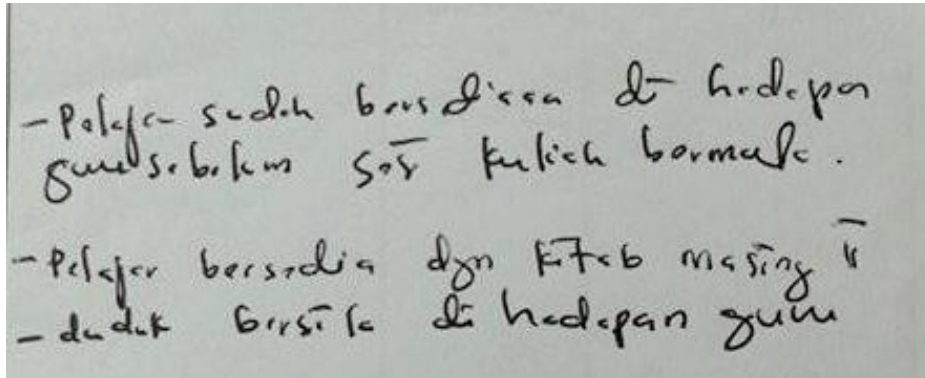 - Pelajar sudah bersdiaa di hadapan
guru sebelum sesi kuliah bermula.
- Pelajar bersedia dgn kitab masing"
- duduk bersila di hadapan guru